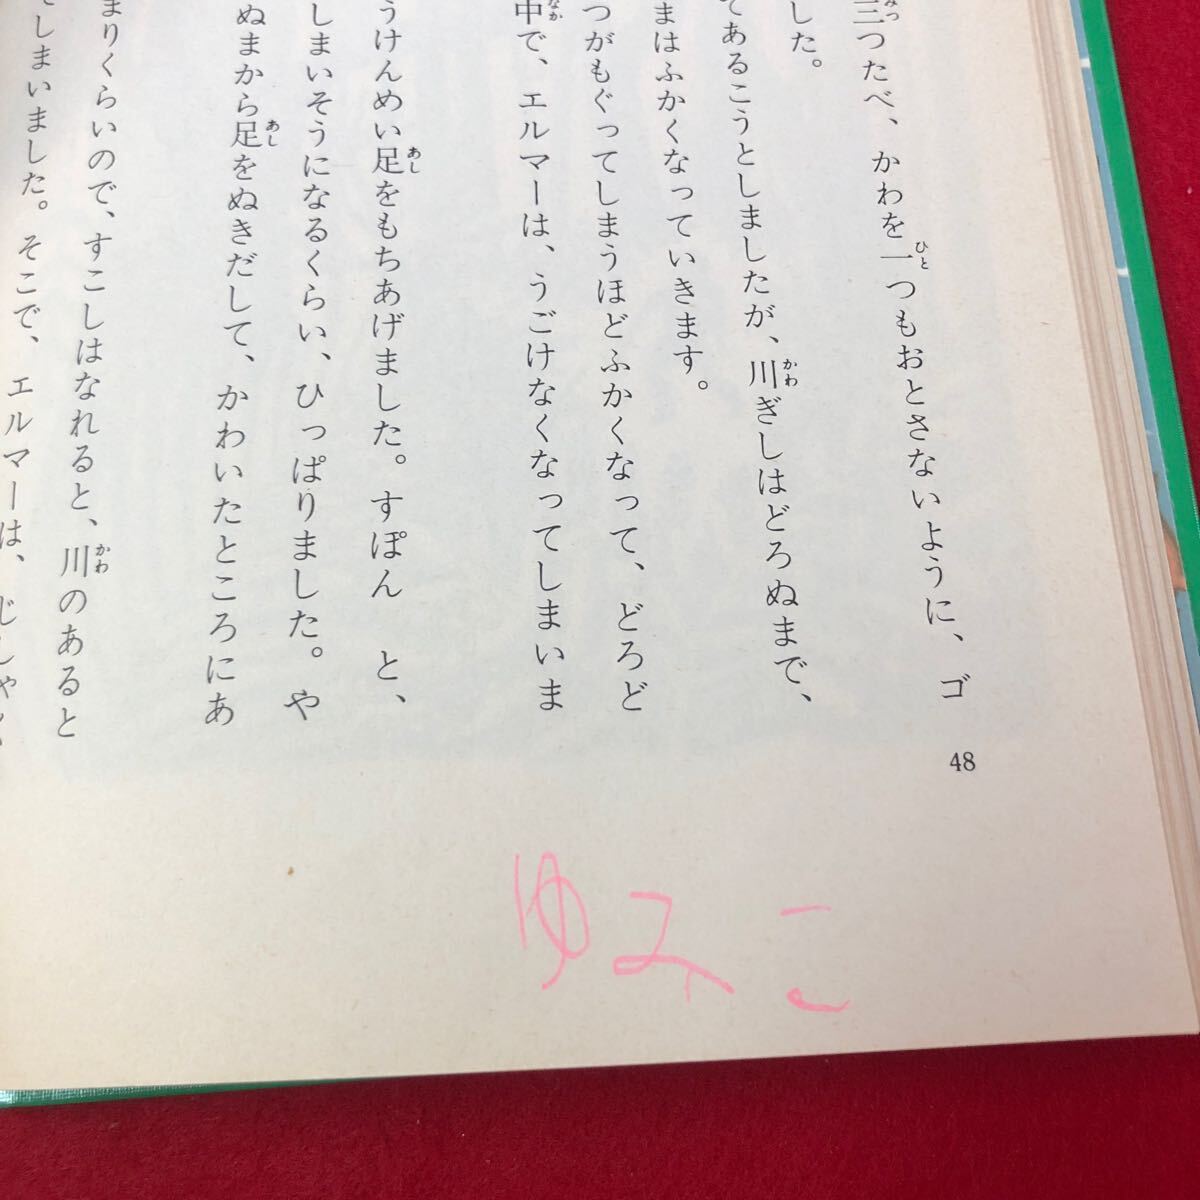 三つたべ、かわを一つもおとさないように、ゴ
した。
てあるこうとしましたが、川ぎしはどろぬまで、
まはふかくなっていきます。
つがもぐってしまうほどふかくなって、どろど
中で、エルマーは、うごけなくなってしまいま
うけんめい足をもちあげました。すぽん と、
しまいそうになるくらい、ひっぱりました。や
ぬまから足をぬきだして、かわいたところにあ
まりくらいので、すこしはなれると、川のあると
てしまいました。そこで、エルマーは、じしゃく
48
ゆみこ